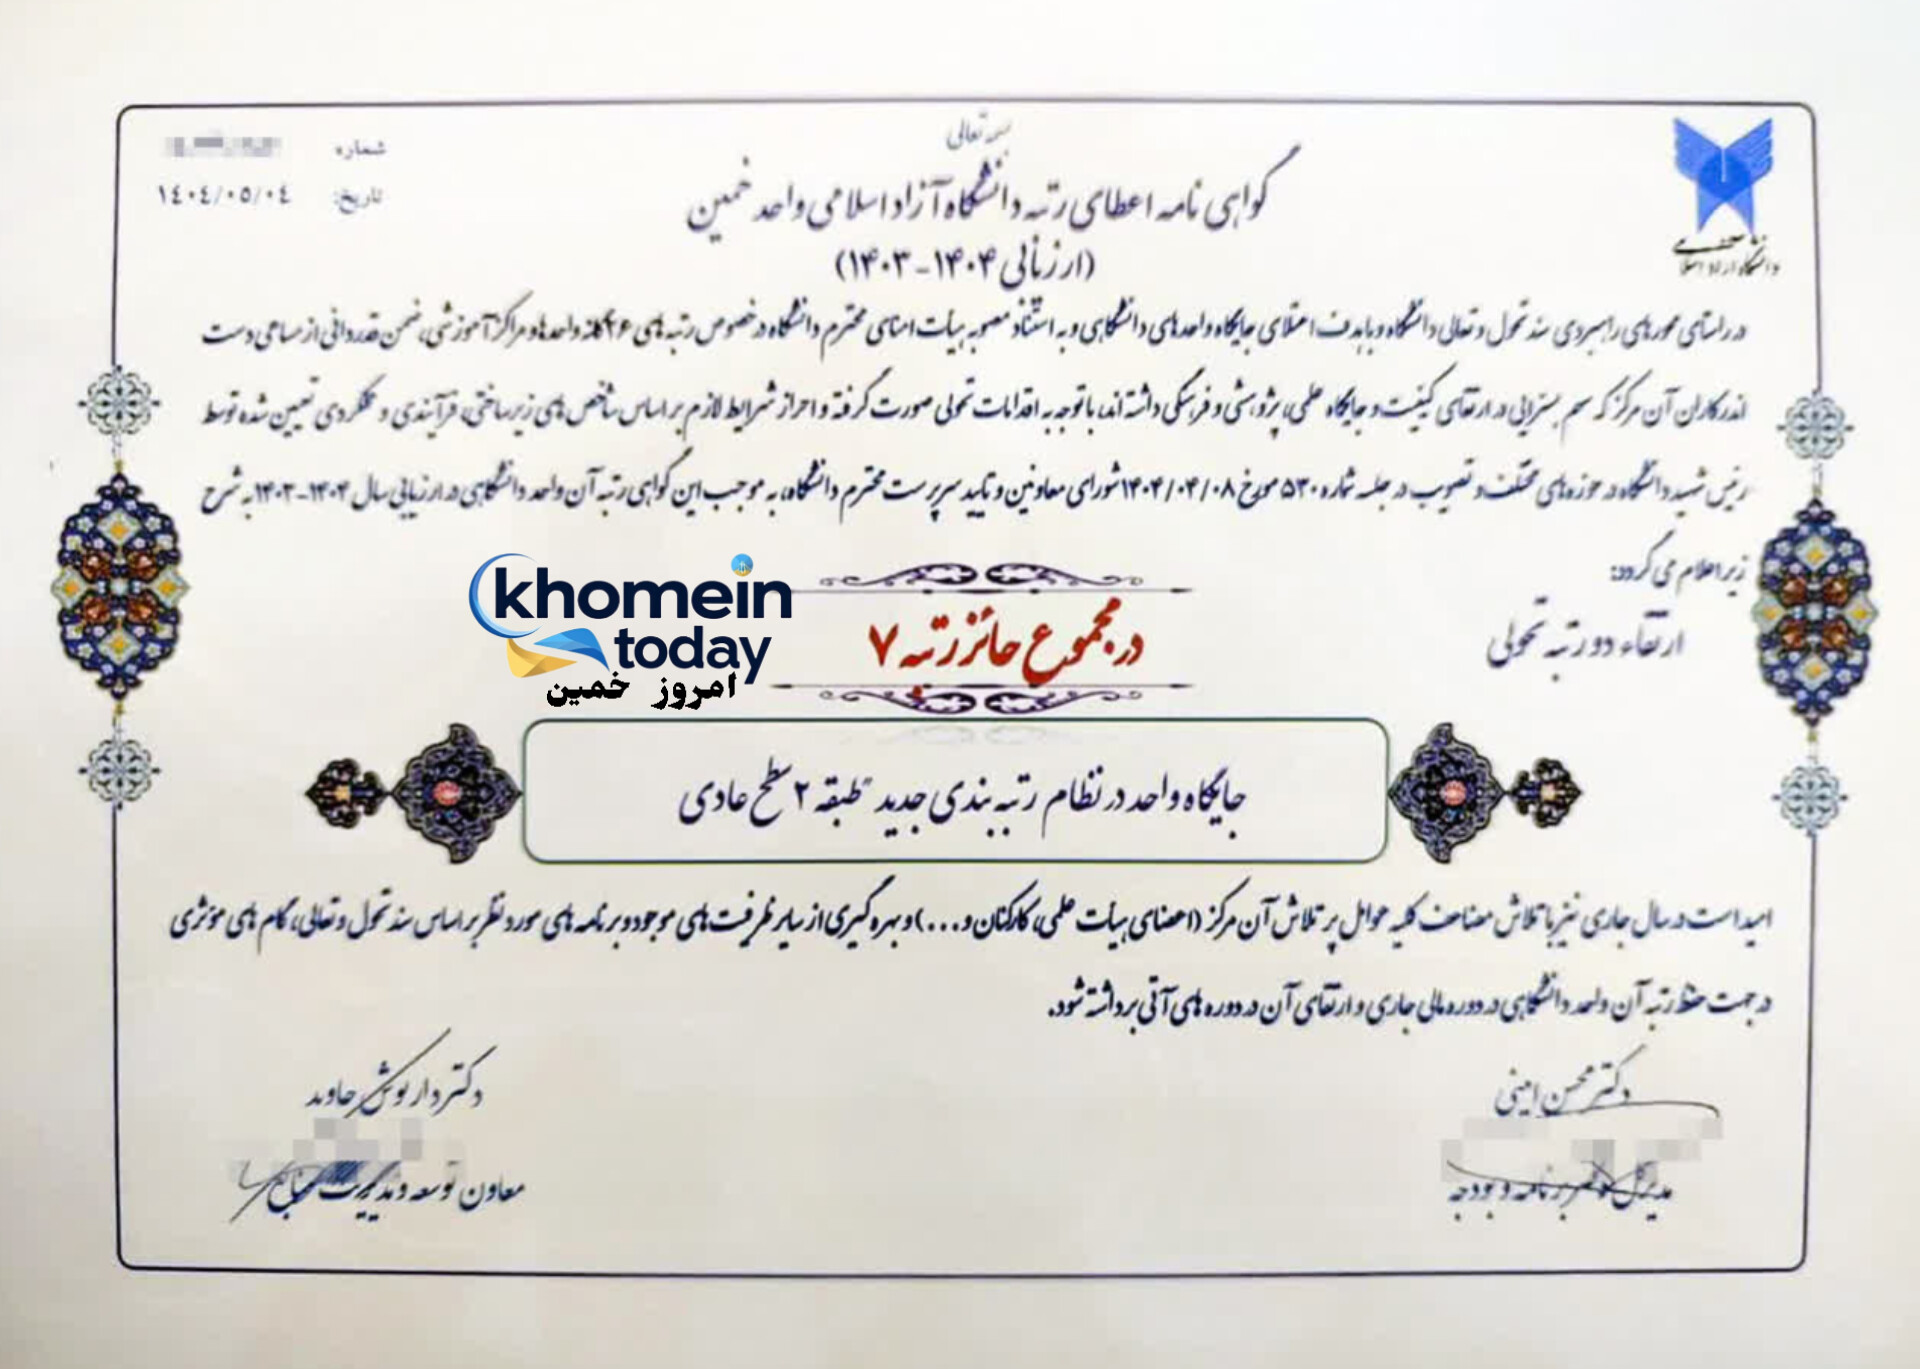 بسمه تعالی
گواهی نامه اعطای رتبه دانشگاه آزاد اسلامی واحد خمین
(ارزیابی ۱۴۰۴-۱۴۰۳)
شماره
تاریخ: ۱۴۰۴/۰۵/۰۴
دانشگاه آزاد اسلامی
در راستای محورهای راهبردی سند تحول و تعالی دانشگاه و با هدف اعتلای جایگاه واحدهای دانشگاهی و به استناد مصوبه هیأت امنای محترم دانشگاه در خصوص رتبه های ۲۶ گانه واحدها و مراکز آموزشی، ضمن قدردانی از مساعی دست
اندرکاران آن مرکز که سهم بسزایی در ارتقای کیفیت و جایگاه علمی، پژوهشی و فرهنگی داشته اند، با توجه به اقدامات تحولی صورت گرفته و احراز شرایط لازم بر اساس شاخص های زیرساختی، فرآیندی و عملکردی تعیین شده توسط
رئیس شهید دانشگاه در حوزه های مختلف و تصویب در جلسه شماره ۵۳۰ مورخ ۱۴۰۴/۰۴/۰۸ شورای معاونین و تایید سرپرست محترم دانشگاه، به موجب این گواهی رتبه آن واحد دانشگاهی در ارزیابی سال ۱۴۰۴-۱۴۰۳ به شرح
زیر اعلام می گردد:
ارتقاء دو رتبه تحولی
در مجموع حائز رتبه ۷
khomein
today
امروز خمین
جایگاه واحد در نظام رتبه بندی جدید "طبقه ۲ سطح عادی
امید است در سال جاری نیز با تلاش مضاعف کلیه عوامل پر تلاش آن مرکز (اعضای هیأت علمی، کارکنان و...) و بهره گیری از سایر ظرفیت های موجود و برنامه های مورد نظر بر اساس سند تحول و تعالی، گام های موثری
در جهت حفظ رتبه آن واحد دانشگاهی در دوره مالی جاری و ارتقای آن در دوره های آتی برداشته شود.
دکتر محسن امینی
مدیرکل دفتر برنامه و بودجه
دکتر داریوش جاوید
معاون توسعه و مدیریت منابع